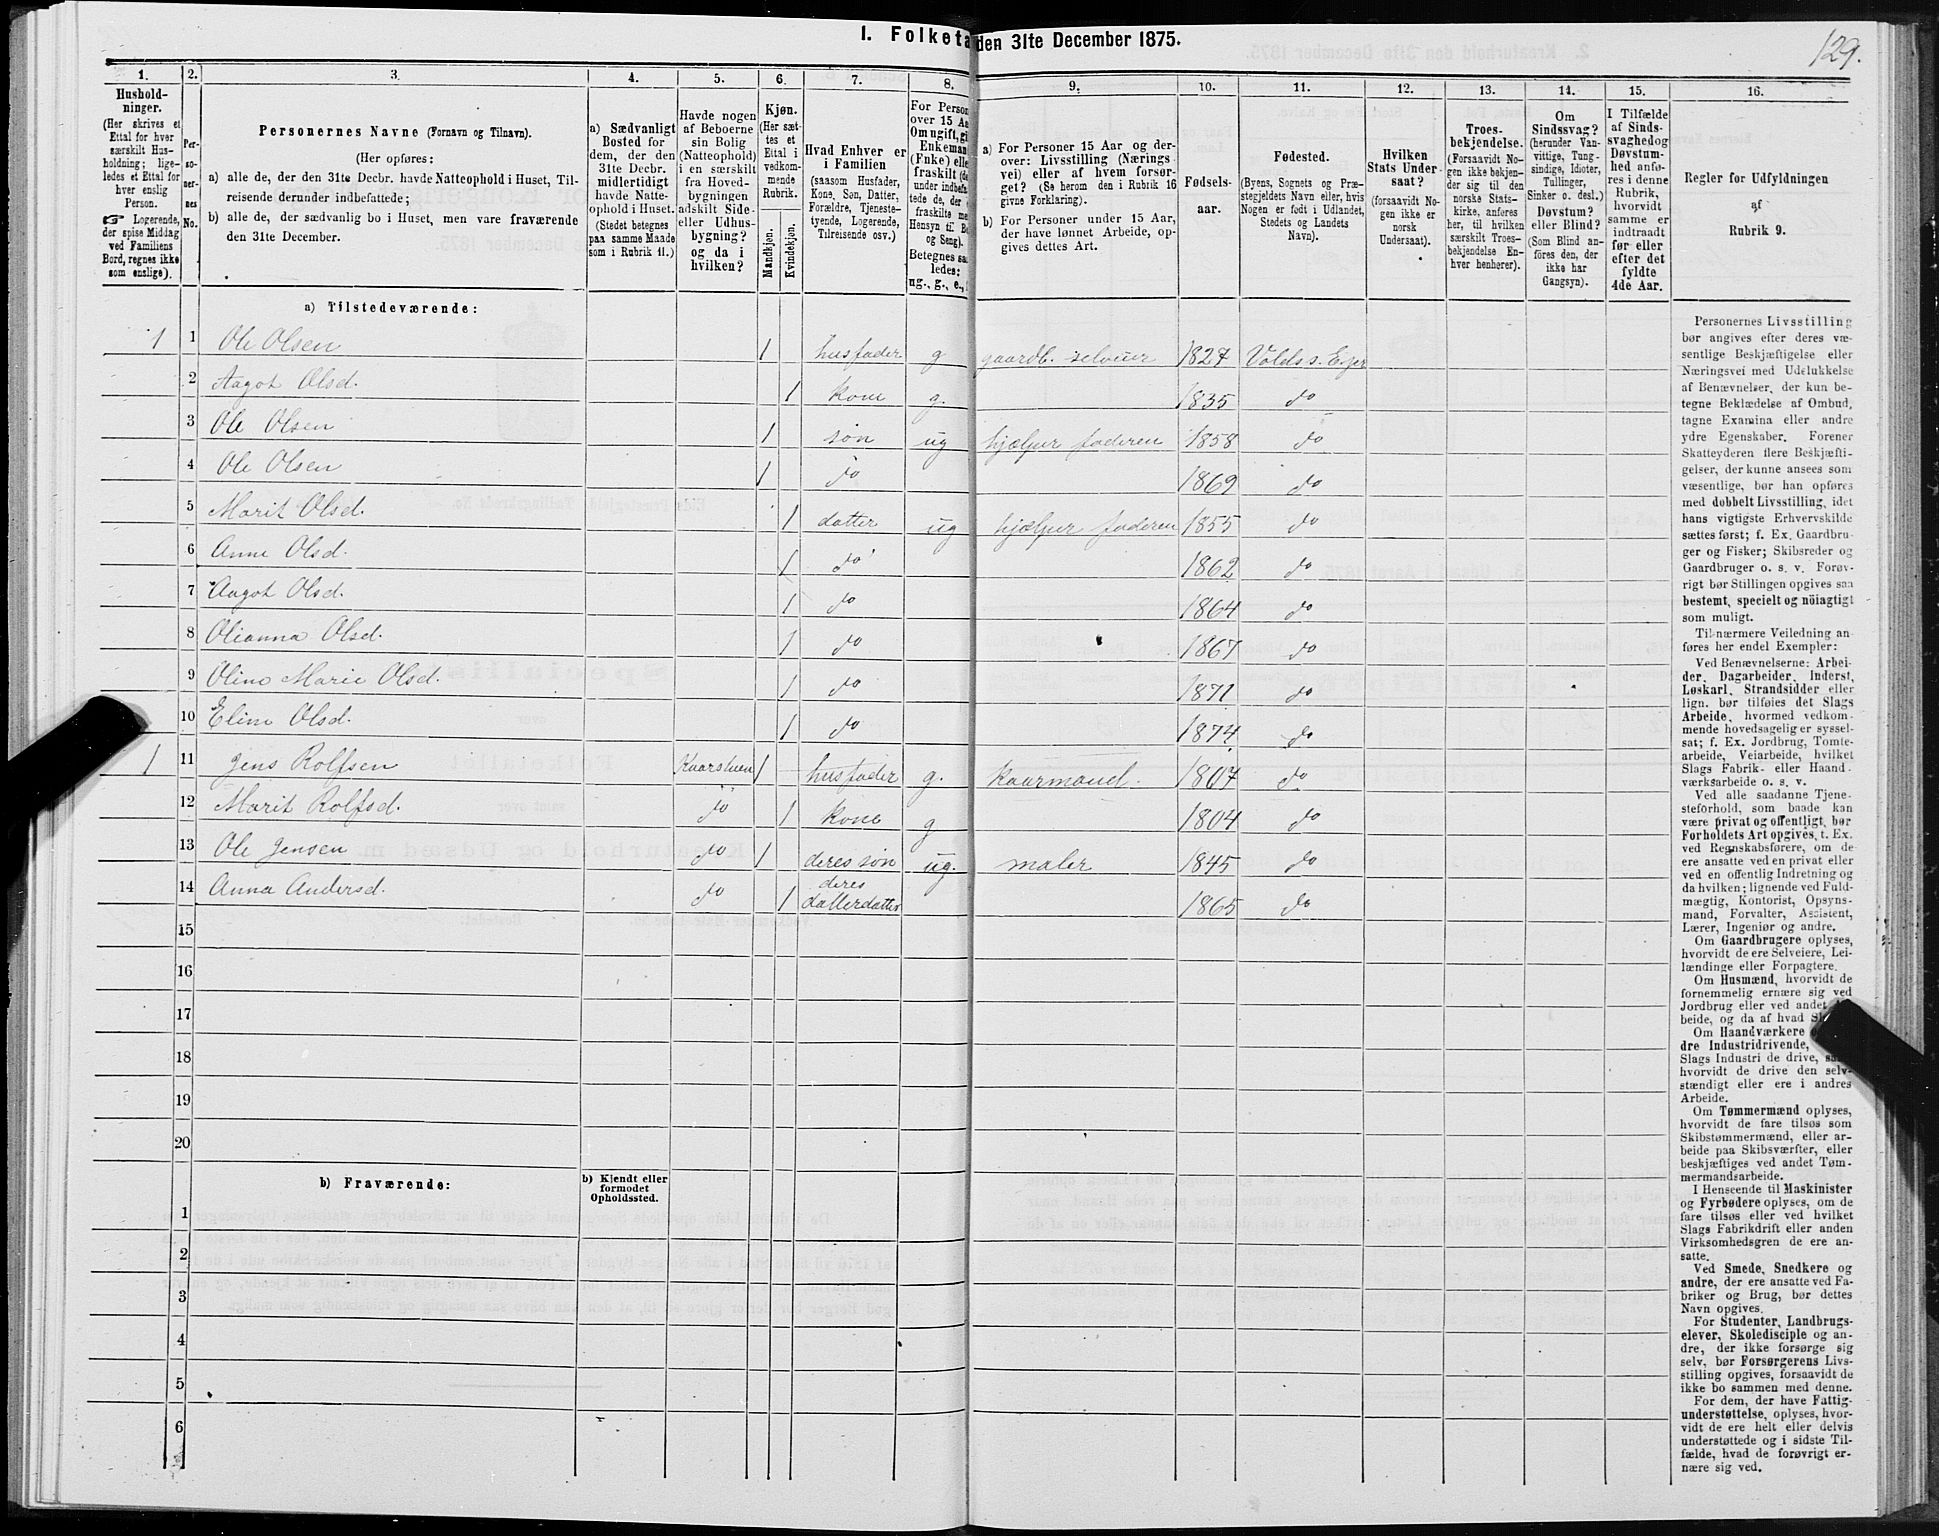 129.
I. Folketa den 31te December 1875.
1. 2. 3. 4. 5. 6. 7. 8. 9. 10. 11. 12. 13. 14. 15. 16.
Hushold-
ninger.
(Her skrives et
Ettal for hver
særskilt Hus-
holdning; lige-
ledes et Ettal for
hver enslig
Person.
☞ Logerende,
der spise Middag
ved Familiens
Bord, regnes ikke
som enslige).
Per-
so-
ner-
nes
No.
Personernes Navne (Fornavn og Tilnavn).
(Her opføres:
a) alle de, der den 31te Decbr. havde Natteophold i Huset, Til-
reisende derunder indbefattede;
b) alle de, der sædvanlig bo i Huset, men vare fraværende
den 31te December.
a) Sædvanligt
Bosted for
dem, der den
31te Decbr.
midlertidigt
havde Natte-
ophold i Huset.
(Stedet betegnes
paa samme Maade
som i Rubrik 11.)
Havde nogen
af Beboerne
sin Bolig
(Natteophold)
i en særskilt
fra Hoved-
bygningen
adskilt Side-
eller Udhus-
bygning?
og da i
hvilken?
Kjøn.
(Her sæt-
tes et
Ettal i
vedkom-
mende
Rubrik.
Mandkjøn.
Kvindekjøn.
Hvad Enhver er
i Familien
(saasom Husfader,
Kone, Søn, Datter,
Forældre, Tjeneste-
tyende, Logerende,
Tilreisende osv.)
For Person
over 15 Aa
Om ugift, gi
Enkeman
(Enke) elle
fraskilt (de
under indbefat
tede de,
fraskilte me
Hensyn til Bo
og Seng).
Betegnes saa
ledes:
ug., g., e.,
a) For Personer 15 Aar og der-
over: Livsstilling (Nærings
vei) eller af hvem forsør-
get? (Se herom den i Rubrik 16
givne Forklaring).
b) For Personer under 15 Aar,
der have lønnet Arbeide, op-
gives dettes Art.
Fødsels-
aar.
Fødested.
(Byens, Sognets og Præ-
stegjeldets Navn eller, hvis
Nogen er født i Udlandet,
Stedets og Landets
Navn).
Hvilken
Stats Under-
saat?
(forsaavidt No-
gen ikke er
norsk
Undersaat).
Troes-
bekjendelse.
(Forsaavidt No-
gen ikke bekjen-
der sig til den
norske Stats-
kirke, anføres
her, til hvilken
særskilt Troes-
bekjendelse En-
hver henhører).
Om
Sindssvag?
(herunder Van-
vittige, Tung-
sindige, Idioter,
Tullinger,
Sinker o. desl.)
Døvstum?
eller Blind?
(Som Blind an-
føres den, der
ikke har
Gangsyn).
I Tilfælde
af Sinds-
svaghed og
Døvstum-
hed anfø-
res i denne
Rubrik,
hvorvidt
samme er
indtraadt
før eller
efter det
fyldte
4de Aar.
Regler for Udfyldningen
af
Rubrik 9.
a) Tilstedeværende:
1 1 Ole Olsen 1 husfader g gaardb. selveier 1827 Volds s. Eger
2 Aagot Olsd. 1 kone g. 1835 do
3 Ole Olsen 1 søn ug hjelper faderen 1858 do
4 Ole Olsen 1 do 1869 do
5 Marit Olsd. 1 datter ug hjelper faderen 1855 do
6 Anne Olsd. 1 do 1862 do
7 Aagot Olsd. 1 do 1864 do
8 Olianna Olsd. 1 do 1867 do
9 Oline Marie Olsd. 1 do 1871 do
10 Eline Olsd. 1 do 1874 do
1 11 Jens Rolfsen Kaarstuen 1 husfader g. kaarmand. 1807 do
12 Marit Rolfsd. do 1 kone g 1804 do
13 Ole Jensen do 1 deres søn ug. maler 1845 do
14 Anna Andersd. do 1 deres datterdatter 1865 do
15
16
17
18
19
20
b) Fraværende:
b) Kjendt eller
formodet
Opholdssted.
1
2
3
4
5
6
Personernes Livsstilling
bør angives efter deres væ-
sentlige Beskjæftigelse eller
Næringsvei med Udelukkelse
af Benævnelser, der kun be-
tegne Beklædelse af Ombud,
tagne Examina eller andre
ydre Egenskaber. Forener
Skatteyderen flere Beskjæfti-
gelser, der kunne ansees som
væsentlige, bør han opføres
med dobbelt Livsstilling, idet
hans vigtigste Erhvervskilde
sættes først; f. Ex. Gaardbru-
ger og Fisker; Skibsreder og
Gaardbruger o. s. v. Forøv-
rigt bør Stillingen opgives saa
bestemt, specielt og nöiagtigt
som muligt.
Til nærmere Veiledning an-
føres her endel Exempler:
Ved Benævnelserne: Arbei-
der, Dagarbeider, Inderst,
Løskarl, Strandsidder eller
lign. bør tilføies det Slags
Arbeide, hvormed vedkom-
mende hovedsagelig er syssel-
sat; f. Ex. Jordbrug, Tomte-
arbeide, Veiarbeide, hvilket
Slags Fabrik- eller Haand-
værksarbeide o. s. v.
Ved alle saadanne Tjene-
steforhold, som baade kan
være privat og offentligt, bør
Forholdets Art opgives, t. Ex.
ved Regnskabsførere, om de
ere ansatte ved en privat eller
ved en offentlig Indretning og
da hvilken; lignende ved Fuld-
mægtig, Kontorist, Opsyns-
mand, Forvalter, Assistent,
Lærer, Ingeniør og andre.
Om Gaardbrugere oplyses,
hvorvidt de ere Selveiere, Lei-
lændinge eller Forpagtere.
Om Husmænd, hvorvidt de
fornemmelig ernære sig ved
Jordbrug eller ved andet
beide, og da af hvad
Om Haandværkere
dre Industridrivende,
Slags Industri de drive,
hvorvidt de drive den selv-
stændigt eller ere i andres
Arbeide.
Om Tømmermænd oplyses,
hvorvidt de fare tilsøs som
Skibstømmermænd, eller ar-
beide paa Skibsværfter, eller
beskjæftiges ved andet Tøm-
mermandsarbeide.
I Henseende til Maskinister
og Fyrbødere oplyses, om de
fare tilsøs eller ved hvilket
Slags Fabrikdrift eller anden
Virksomhedsgren de ere an-
satte.
Ved Smede, Snedkere og
andre, der ere ansatte ved Fa-
briker og Brug, bør dettes
Navn opgives.
For Studenter, Landbrugs-
elever, Skoledisciple og an-
dre, der ikke forsørge sig
selv, bør Forsørgerens Livs-
stilling opgives, forsaavidt de
ikke bo sammen med denne.
For dem, der have Fattig-
understøttelse, oplyses, hvor-
vidt de ere helt eller delvis
understøttede og i sidste Til-
fælde, hvad de forøvrigt er-
nære sig ved.